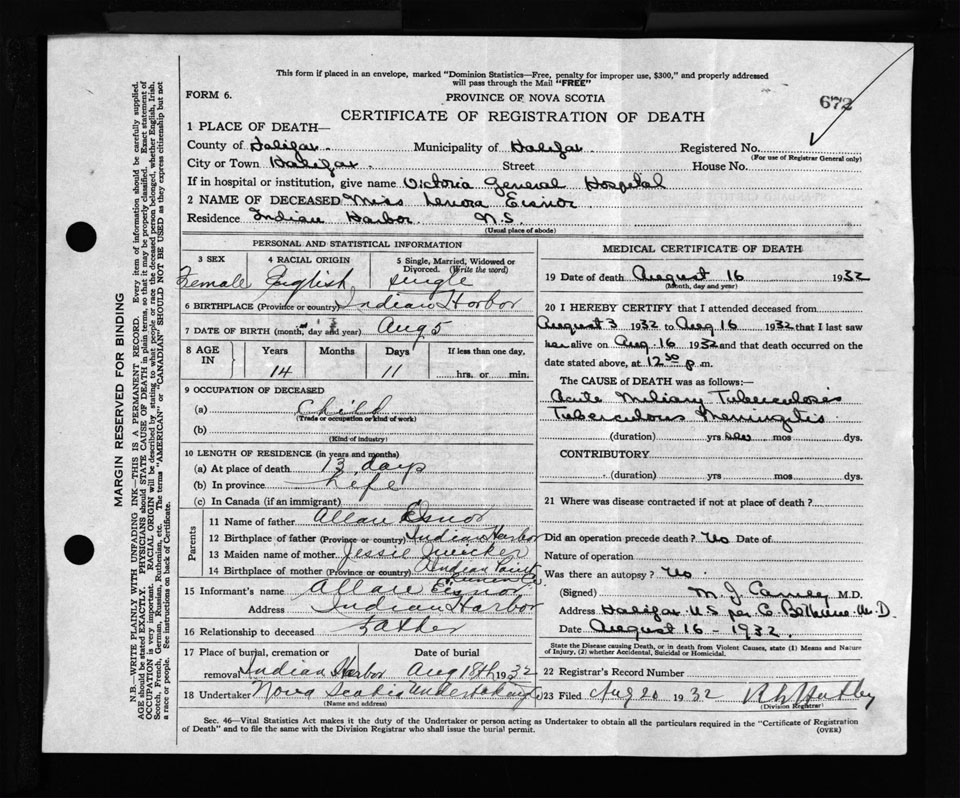 This form if placed in an envelope, marked "Dominion Statistics—Free, penalty for improper use, $300," and properly addressed
will pass through the Mail "FREE"
FORM 6.
PROVINCE OF NOVA SCOTIA
672
CERTIFICATE OF REGISTRATION OF DEATH
1 PLACE OF DEATH—
County of Halifax Municipality of Halifax Registered No.
(For use of Registrar General only)
City or Town Halifax Street House No.
If in hospital or institution, give name Victoria General Hospital
2 NAME OF DECEASED Miss Lenora Eisnor
Residence Indian Harbor N.S.
(Usual place of abode)
PERSONAL AND STATISTICAL INFORMATION
3 SEX 4 RACIAL ORIGIN 5 Single, Married, Widowed or
Divorced. (Write the word)
Female English single
6 BIRTHPLACE (Province or country) Indian Harbor
7 DATE OF BIRTH (month, day and year) Aug 5
8 AGE IN Years Months Days If less than one day,
14 11 hrs. or min.
9 OCCUPATION OF DECEASED
(a) Child
(Trade or occupation or kind of work)
(b)
(Kind of industry)
10 LENGTH OF RESIDENCE (in years and months)
(a) At place of death 13 days
(b) In province Life
(c) In Canada (if an immigrant)
Parents
11 Name of father Allan Eisnor
12 Birthplace of father (Province or country) Indian Harbor
13 Maiden name of mother Jessie
14 Birthplace of mother (Province or country) Indian Point
Lunen Co.
15 Informant's name Allan Eisnor
Address Indian Harbor
16 Relationship to deceased Father
17 Place of burial, cremation or Date of burial
removal Indian Harbor Aug 18th 1932
18 Undertaker Nova Scotia Undertaking Co
(Name and address)
MEDICAL CERTIFICATE OF DEATH
19 Date of death August 16 1932
(Month, day and year)
20 I HEREBY CERTIFY that I attended deceased from
August 3 1932 to Aug 16 1932 that I last saw
her alive on Aug. 16 1932 and that death occurred on the
date stated above, at 12 30 p m.
The CAUSE OF DEATH was as follows:—
Acute Miliary Tuberculosis
Tuberculous Meningitis
(duration) yrs mos dys.
CONTRIBUTORY
(duration) yrs. mos. dys.
21 Where was disease contracted if not at place of death?
Did an operation precede death? No Date of
Nature of operation
Was there an autopsy? No.
(Signed) M. J. Carney M.D.
Address Halifax N.S per C. Bellerine M.D.
Date August 16 - 1932.
State the Disease causing Death, or in death from Violent Causes, state (1) Means and Nature
of Injury, (2) whether Accidental, Suicidal or Homicidal.
22 Registrar's Record Number
23 Filed Aug 20 1932
(Division Registrar)
Sec. 46—Vital Statistics Act makes it the duty of the Undertaker or person acting as Undertaker to obtain all the particulars required in the "Certificate of Registration
of Death" and to file the same with the Division Registrar who shall issue the burial permit.
(OVER)
MARGIN RESERVED FOR BINDING
N.B.—WRITE PLAINLY WITH UNFADING INK—THIS IS A PERMANENT RECORD. Every item of information should be carefully supplied.
AGE should be stated EXACTLY. PHYSICIANS should STATE CAUSE OF DEATH in plain terms, so that it may be properly classified. Exact statement of
OCCUPATION is very important. RACIAL ORIGIN will be described by stating to what people or race the deceased person belonged, whether English, Irish,
Scotch, French, German, Russian, Ruthenian, etc. The terms "AMERICAN" or "CANADIAN" SHOULD NOT BE USED as they express citizenship but not
a race or people. See instructions on back of Certificate.